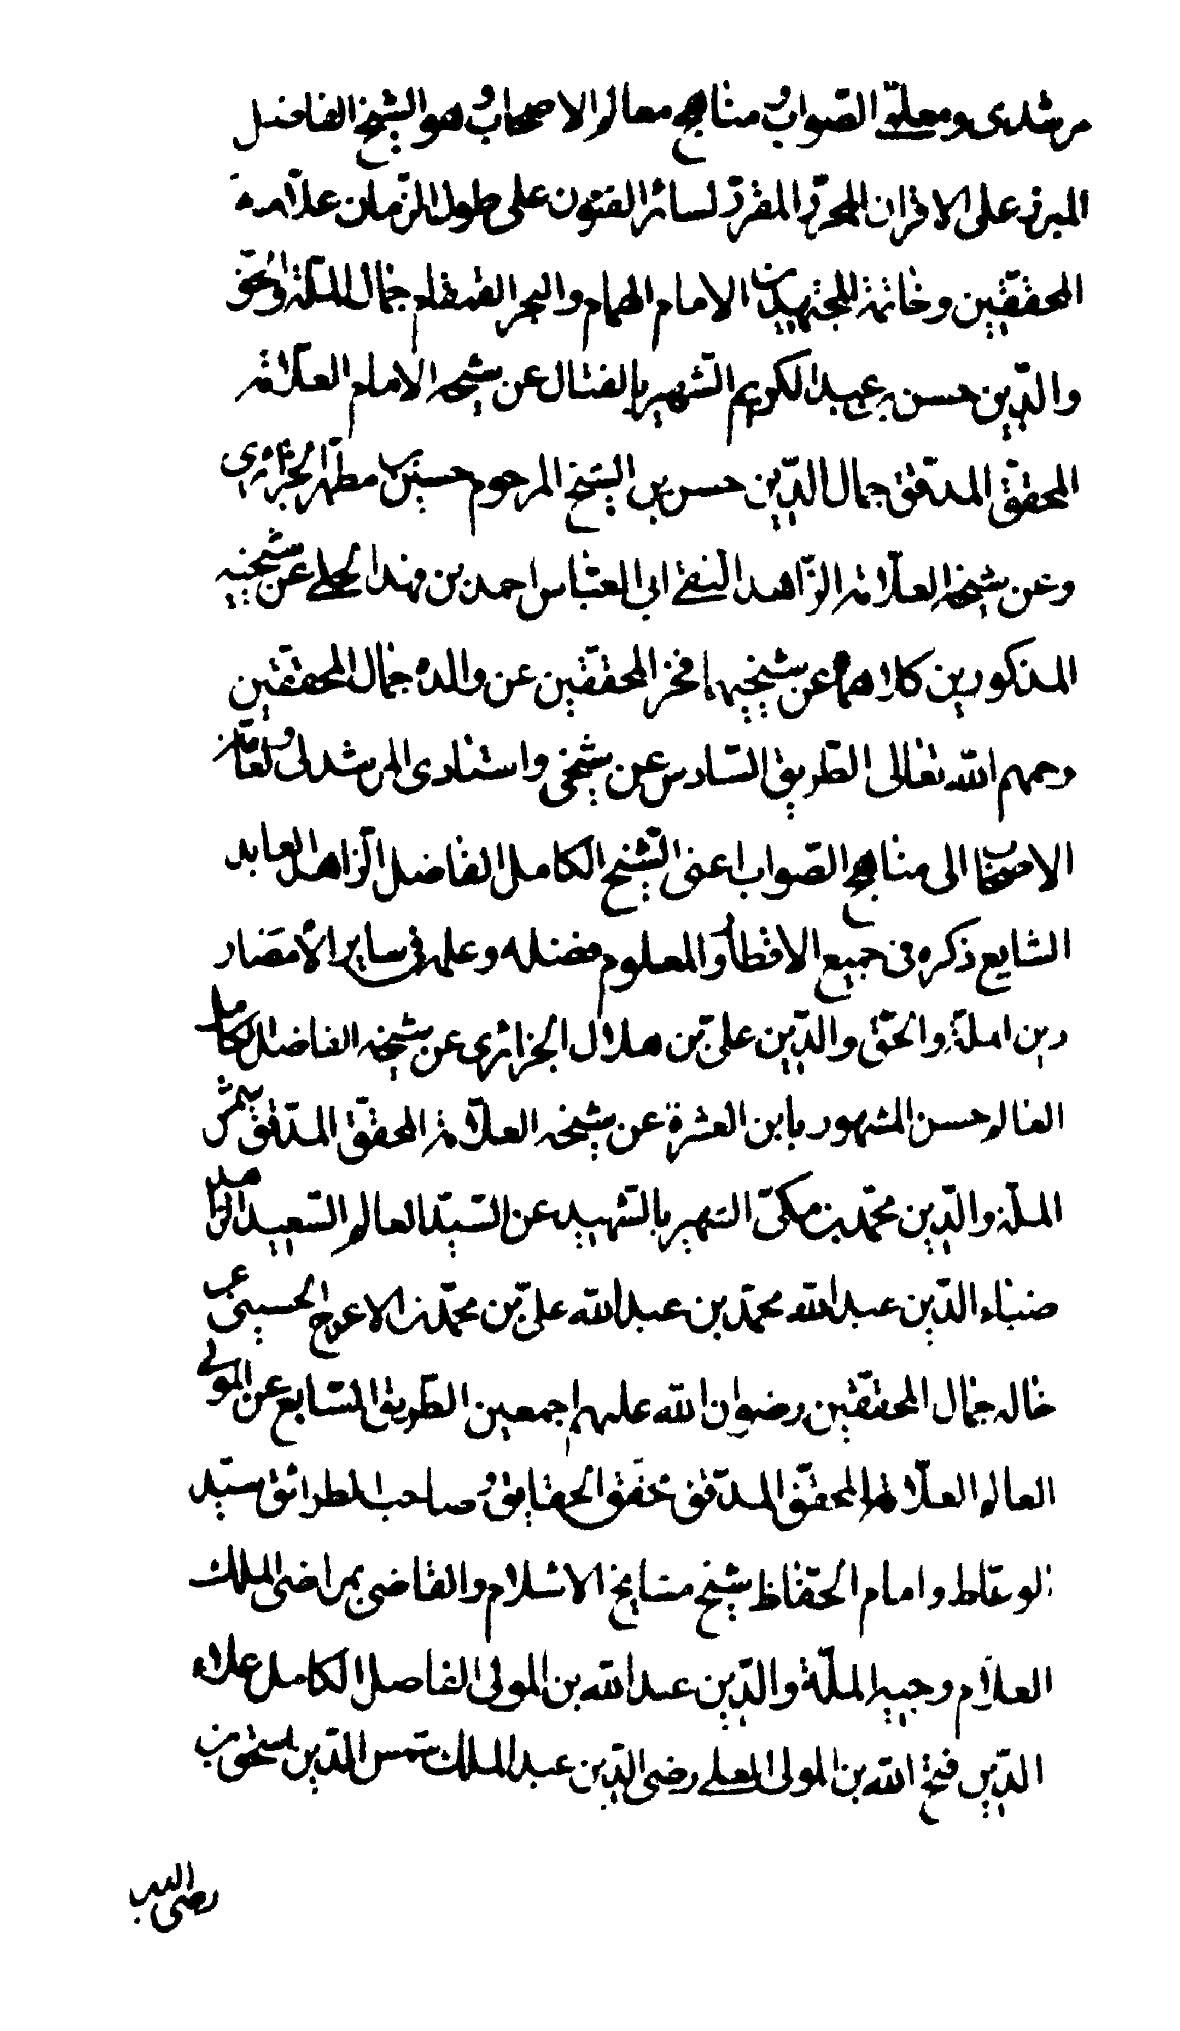 مرشدى ومعلمى الصواب ومناهج معالم الاصحاب وهو الشيخ الفاضل
المبرز على الاقران المحرز المفرد لسائر الفنون على طول الزمان علامة
المحققين وخاتمة المجتهدين الامام الهمام والبحر القمقام جمال الملة والحق
والدين حسن بن عبد الكريم الشهير بالفتال عن شيخه الامام العلامة
المحقق المدقق جمال الدين حسن بن الشيخ المرحوم حسين بن مطهر الجزائرى
وعن شيخه العلامة الزاهد التقى ابى العباس احمد بن فهد الحلى عن شيخيه
المذكورين كلاهما عن شيخيهما فخر المحققين عن والده جمال المحققين
رحمهم الله تعالى الطريق السادس عن شيخى واستادى المرشد لى ولعامة
الاصحاب الى مناهج الصواب اعنى الشيخ الكامل الفاضل الزاهد العابد
الشايع ذكره فى جميع الاقطار والمعلوم فضله وعلمه فى ساير الأمصار
زين املة والحق والدين على بن هلال الجزائرى عن شيخه الفاضل الكامل
العالم حسن المشهور بابن العشرة عن شيخه العلامة المحقق المدقق شمس
الملة والدين محمد بن مكى الشهير بالشهيد عن السيد العالم السعيد الزاهد
ضياء الدين عبد الله محمد بن عبد الله على بن محمد بن الاعرج الحسينى عن
خاله جمال المحققين رضوان الله عليهم اجمعين الطريق السابع عن المولى
العالم العلامة المحقق المدقق محقق الحقايق وصاحب الطرائق سيد
الوعاظ وامام الحفاظ شيخ مشايخ الاسلام والقاضى بمراضى الملك
العلام وجيه الملة والدين عبد الله بن المولى الفاضل الكامل علاء
الدين فتح الله بن المولى المعلى رضى الدين عبد الملك شمس الدين اسحق بن
رضى الدين